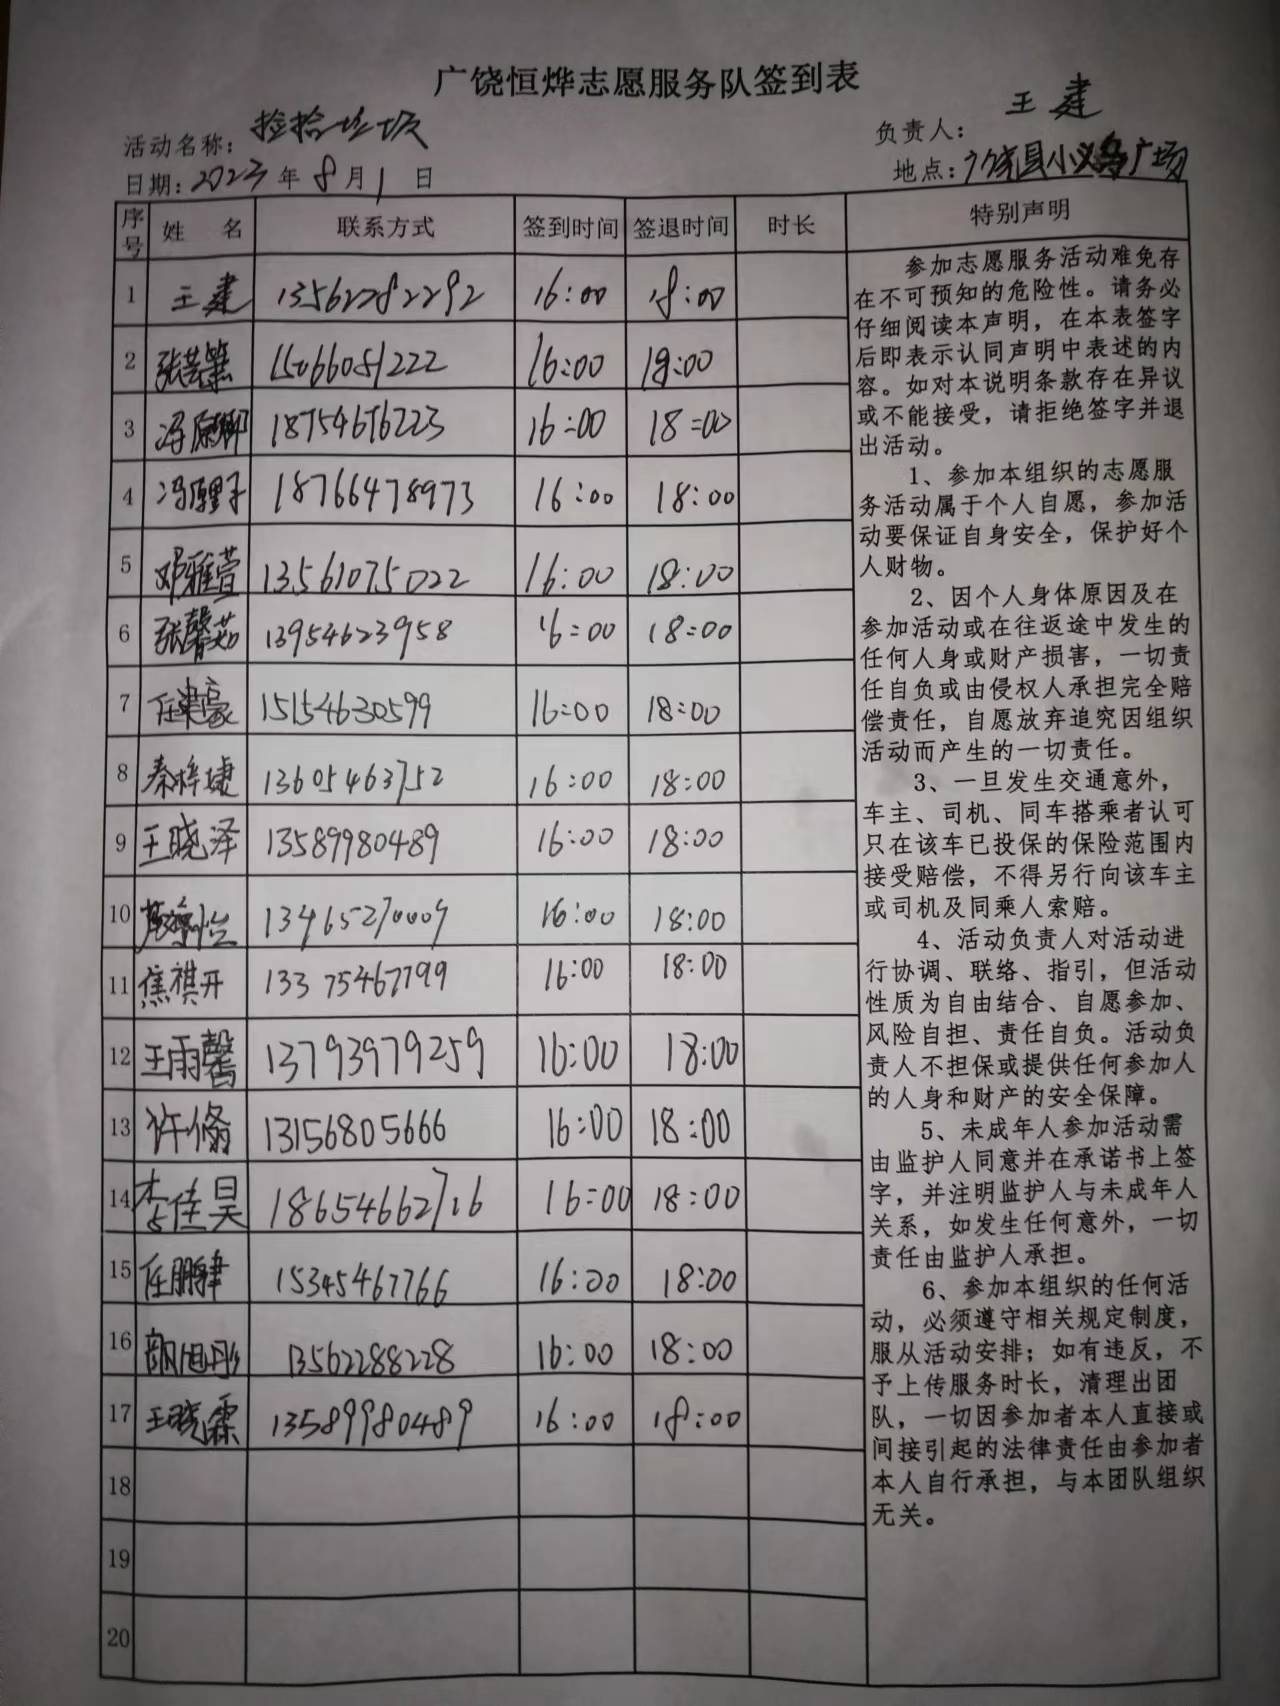 广饶恒烨志愿服务队签到表
活动名称：捡拾垃圾 负责人：王建
日期：2023年8月1日 地点：广饶县小义乌广场
序号 姓 名 联系方式 签到时间 签退时间 时长 特别声明
1 王建 13562282292 16:00 18:00
2 15066051222 16:00 18:00
3 18754676223 16:00 18:00
4 18766478973 16:00 18:00
5 邓雅萱 13561075022 16:00 18:00
6 张馨茹 13954623958 16:00 18:00
7 15154630599 16:00 18:00
8 秦梓婕 13605463752 16:00 18:00
9 王晓泽 13589980489 16:00 18:00
10 13465270009 16:00 18:00
11 焦祺开 13375467799 16:00 18:00
12 王雨馨 13793979259 16:00 18:00
13 许翛 13156805666 16:00 18:00
14 李佳昊 18654662716 16:00 18:00
15 任鹏肆 15345467766 16:00 18:00
16 13562288228 16:00 18:00
17 王晓霖 13589980489 16:00 18:00
18
19
20
参加志愿服务活动难免存
在不可预知的危险性。请务必
仔细阅读本声明，在本表签字
后即表示认同声明中表述的内
容。如对本说明条款存在异议
或不能接受，请拒绝签字并退
出活动。
1、参加本组织的志愿服
务活动属于个人自愿，参加活
动要保证自身安全，保护好个
人财物。
2、因个人身体原因及在
参加活动或在往返途中发生的
任何人身或财产损害，一切责
任自负或由侵权人承担完全赔
偿责任，自愿放弃追究因组织
活动而产生的一切责任。
3、一旦发生交通意外，
车主、司机、同车搭乘者认可
只在该车已投保的保险范围内
接受赔偿，不得另行向该车主
或司机及同乘人索赔。
4、活动负责人对活动进
行协调、联络、指引，但活动
性质为自由结合、自愿参加、
风险自担、责任自负。活动负
责人不担保或提供任何参加人
的人身和财产的安全保障。
5、未成年人参加活动需
由监护人同意并在承诺书上签
字，并注明监护人与未成年人
关系，如发生任何意外，一切
责任由监护人承担。
6、参加本组织的任何活
动，必须遵守相关规定制度，
服从活动安排；如有违反，不
予上传服务时长，清理出团
队，一切因参加者本人直接或
间接引起的法律责任由参加者
本人自行承担，与本团队组织
无关。